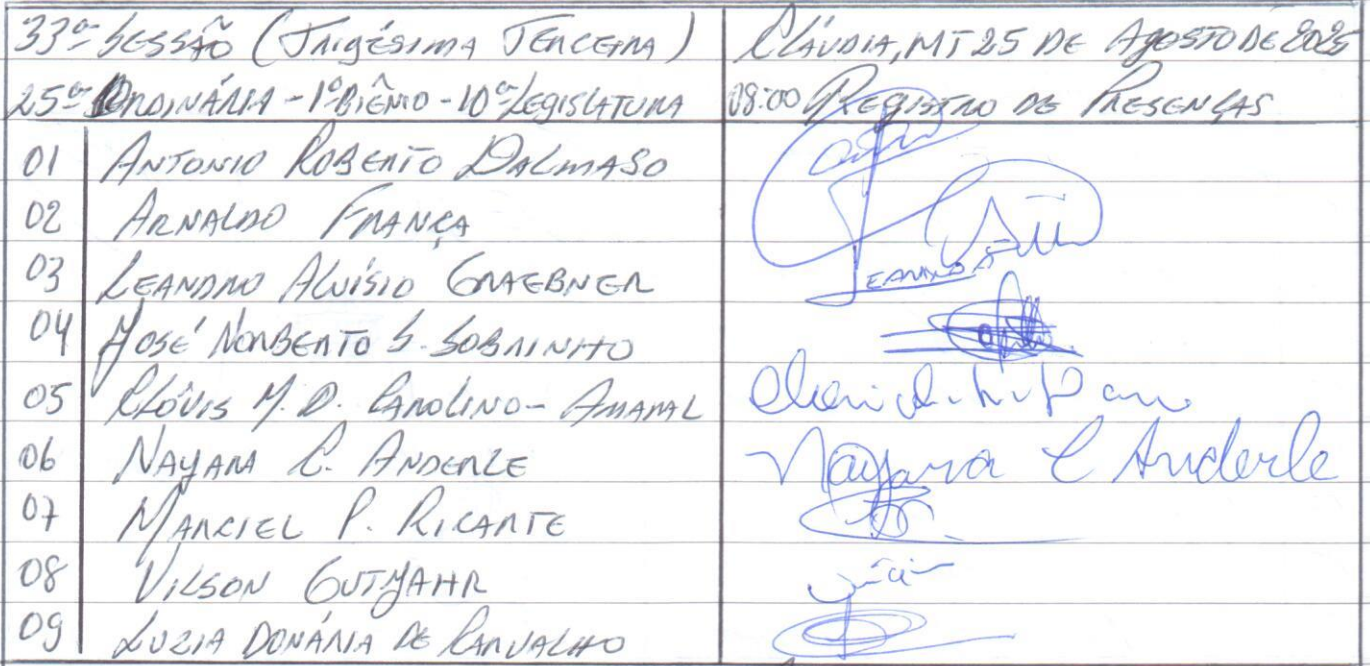 33ª SESSÃO (TRIGÉSIMA TERCEIRA)
CLÁUDIA, MT 25 DE AGOSTO DE 2025
25ª ORDINÁRIA - 1º BIÊNIO - 10ª LEGISLATURA
08:00 REGISTRO DE PRESENÇAS
01 ANTONIO ROBERTO DALMASO
02 ARNALDO FRANÇA
03 LEANDRO ALUÍSIO GRAEBNER
LEANDRO A
04 JOSÉ NORBERTO S. SOBRINHO
05 CLÓVIS M. D. CAROLINO - AMARAL
06 NAYARA C. ANDERLE
Nayara C Anderle
07 MARCIEL P. RICARTE
08 VILSON GUTJAHR
09 LUZIA DONÁRIA DE CARVALHO